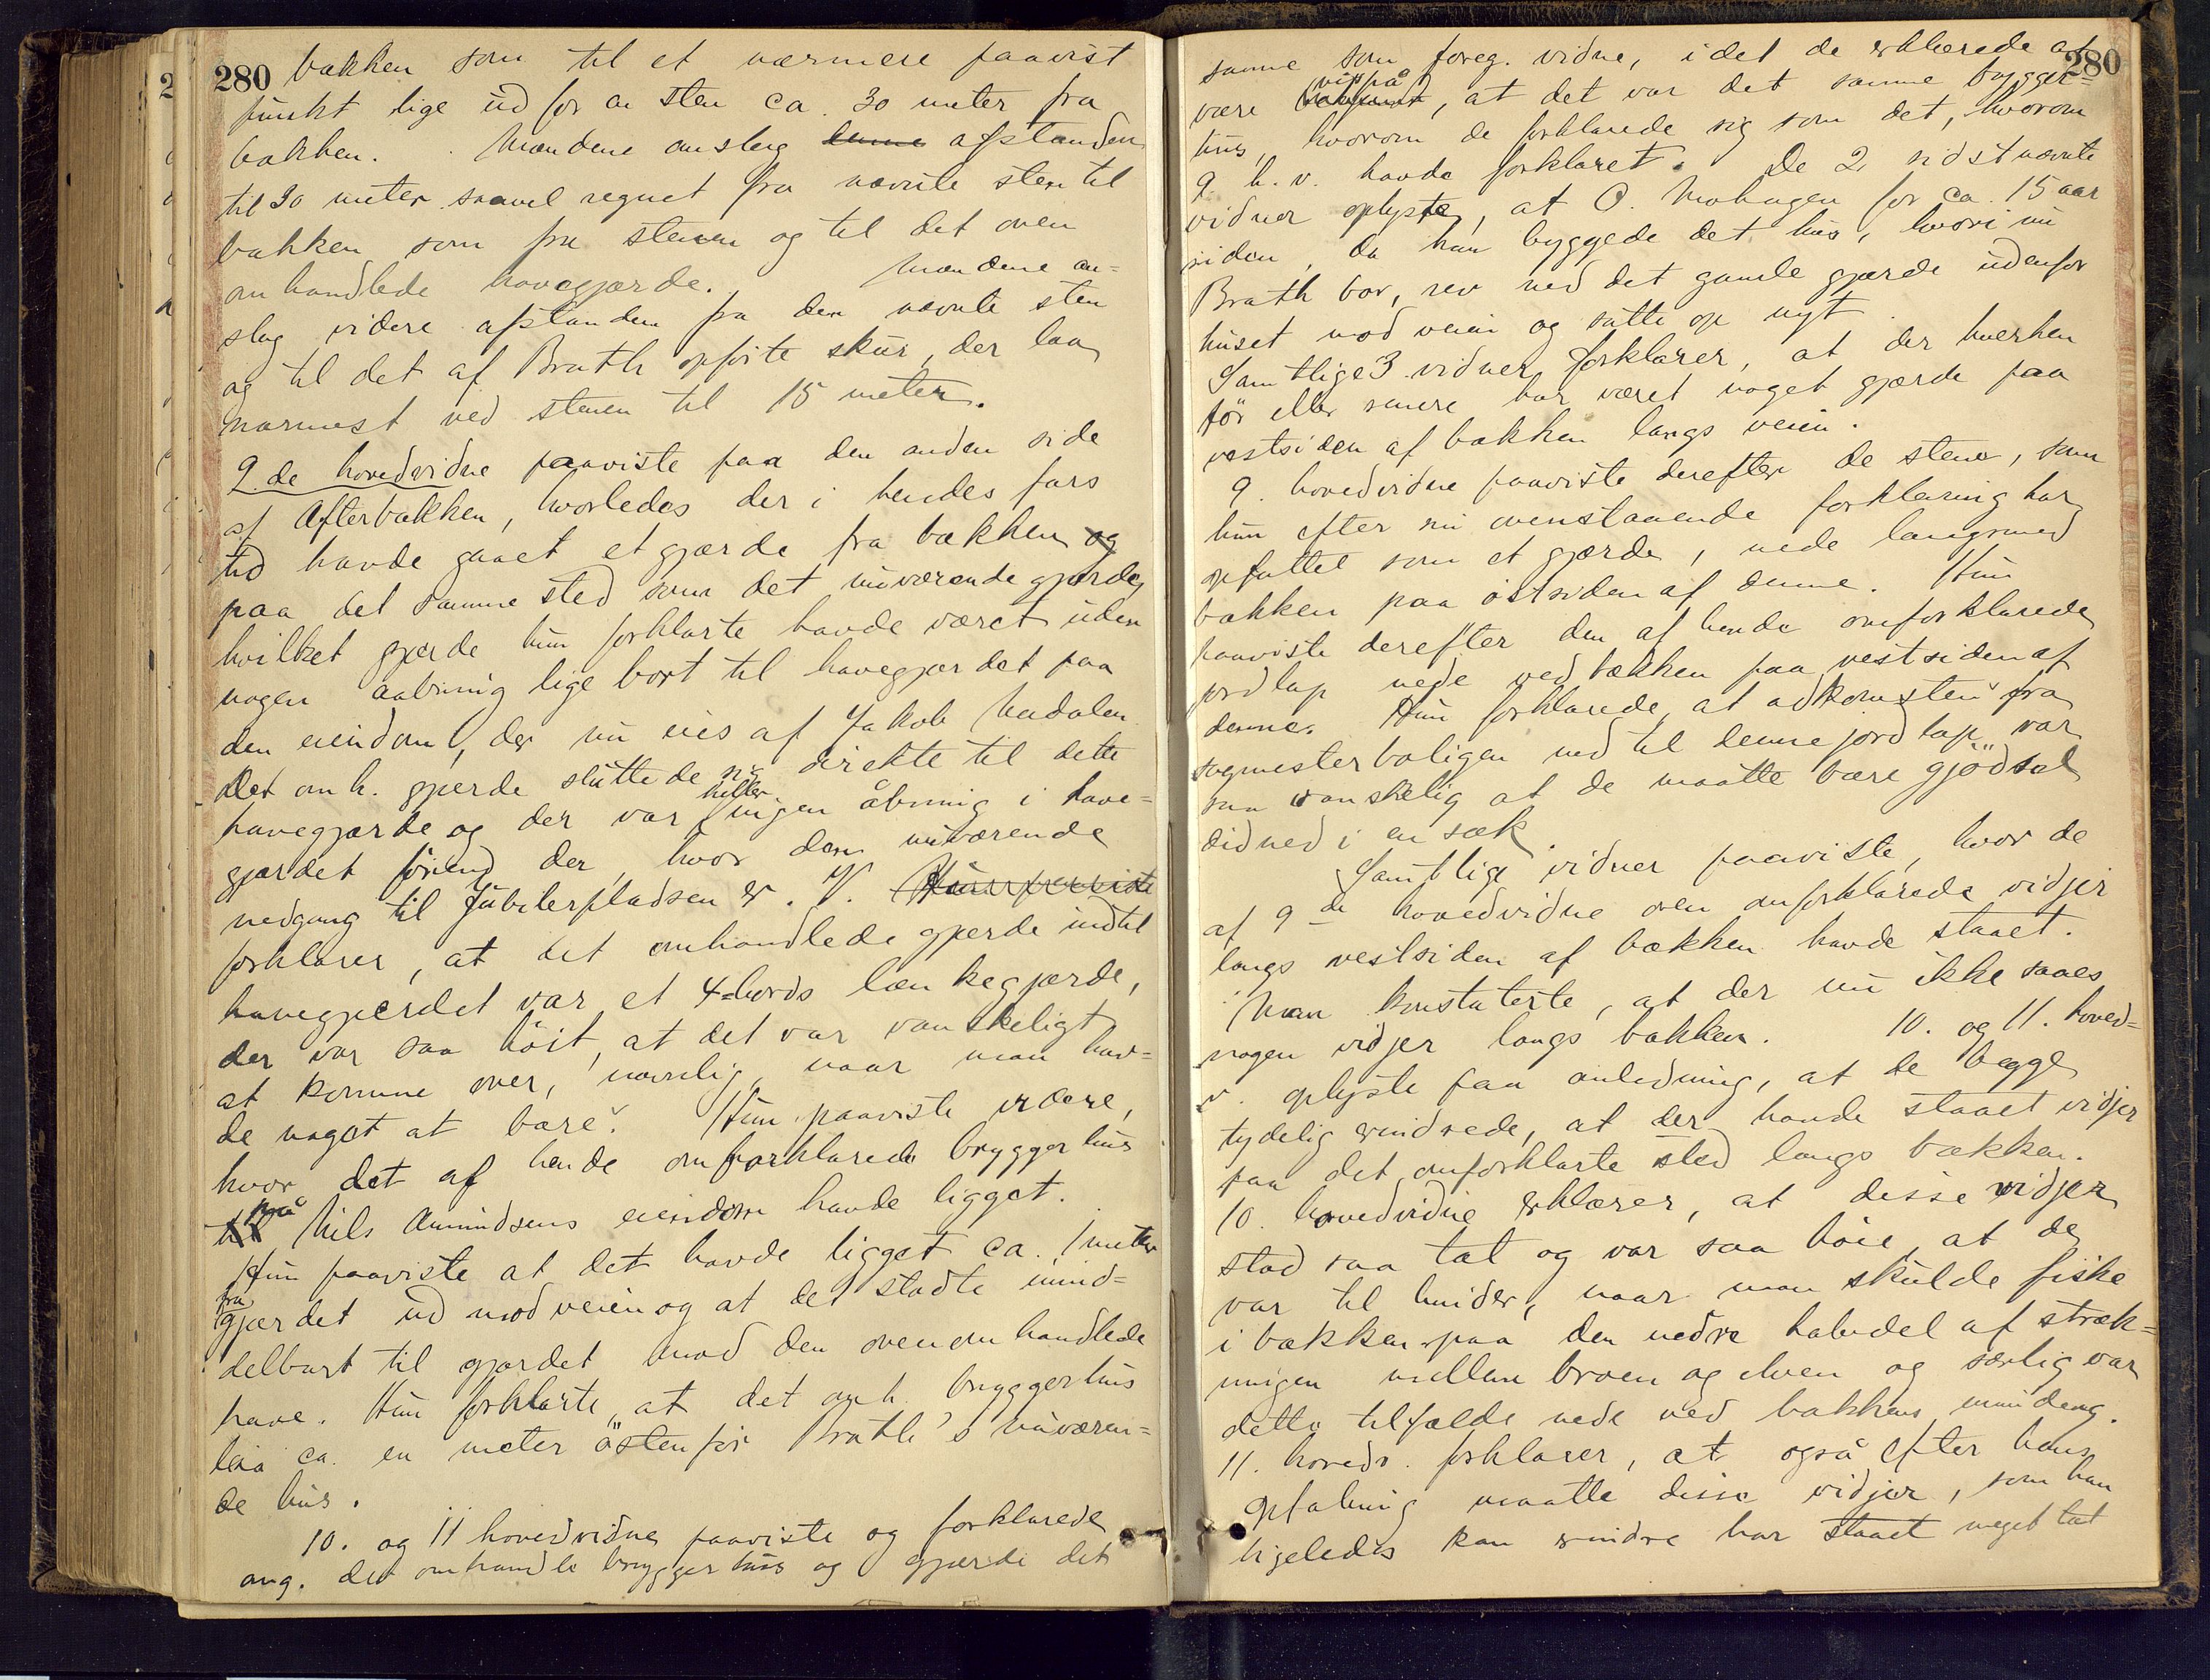 280
bækken som til et nærmere paavist
punkt lige ud for en sten ca. 30 meter fra
bækken. Mændene anslog denne afstanden
til 30 meter saavel regnet fra nævnte sten til
bækken som fra stenen og til det oven
omhandlede havegjærde. Mændene an=
slog videre afstanden fra den nævnte sten
og til det af Brath opførte skur, der laa
nærmest ved stenen til 15 meter.
9.de hovedvidne paaviste paa den anden side
af Afterbækken, hvorledes der i hendes fars
tid havde gaaet et gjærde fra bækken og
paa det samme sted som det nuværende gjærde,
hvilket gjærde hun forklarte havde været uden
nogen aabning lige bort til havegjærdet paa
den eiendom, der nu eies af Jakob Mædalen.
Det omh. gjærde sluttede sig direkte til dette
havegjærde og der var heller ingen åbning i have=
gjærdet førend der, hvor den nuværende
nedgang til Jubilerpladsen er. V. Hun paaviste
forklarer, at det omhandlede gjærde indtil
havegjærdet var et 4-bords lænkegjærde,
der var saa høit, at det var vanskeligt
at komme over, navnlig naar man hav=
de noget at bære. Hun paaviste videre,
hvor det af hende omforklarede bryggerhus
til på Nils Amundsens eiendom havde ligget.
Hun paaviste at det havde ligget ca. 1 meter
fra gjærdet ud mod veien og at det stødte umid=
delbart til gjærdet mod den ovenomhandlede
have. Hun forklarte, at det omh. bryggerhus
laa ca. en meter østenfor Brath's nuværen=
de hus.
10. og 11 hovedvidne paaviste og forklarede
ang. det omhandle bryggerhus og gjærde det
280
samme som foreg. vidne, idet de erklærede at
være viss på, at det var det samme brygger=
hus, hvorom de forklarede sig som det, hvorom
9. h. v. havde forklaret. De 2 sidstnævnte
vidner oplyste, at O. Mohagen for ca. 15 aar
siden, da han byggede det hus, hvori nu
Brath bor, rev ned det gamle gjærde udenfor
huset mod veien og satte op nyt.
Samtlige 3 vidner forklarer, at der hverken
før eller senere har været noget gjærde paa
vestsiden af bækken langs veien.
9. hovedvidne paaviste derefter de stene, som
hun efter sin ovenstaaende forklaring har
opfattet som et gjærde, nede langsmed
bækken paa østsiden af denne. Hun
paaviste derefter den af hende omforklarede
jordlap nede ved bækken paa vestsiden af
denne. Hun forklarede, at adkomsten fra
bygmesterboligen ned til denne jordlap var
saa vanskelig at de maatte bære gjødsel
didned i en sæk.
Samtlige vidner paaviste, hvor de
af 9de hovedvidne oven omforklarede vidjer
langs vestsiden af bækken havde staaet.
Man konstaterte, at der nu ikke saaes
nogen vidjer langs bækken. 10. og 11. hoved=
v. oplyste paa anledning, at de begge
tydelig erindrede, at der havde staaet vidjer
paa det omforklarte sted langs bækken.
10. hovedvidne erklærer, at disse vidjer
stod saa tæt og var saa høie, at de
var til hinder, naar man skulde fiske
i bækken paa den nedre halvdel af stræk=
ningen mellem broen og elven og særlig var
dette tilfælde nede ved bækkens munding.
11. hovedv. forklarer, at også efter hans
opfatning maatte disse vidjer, som han
ligeledes kan erindre har staaet meget tæt